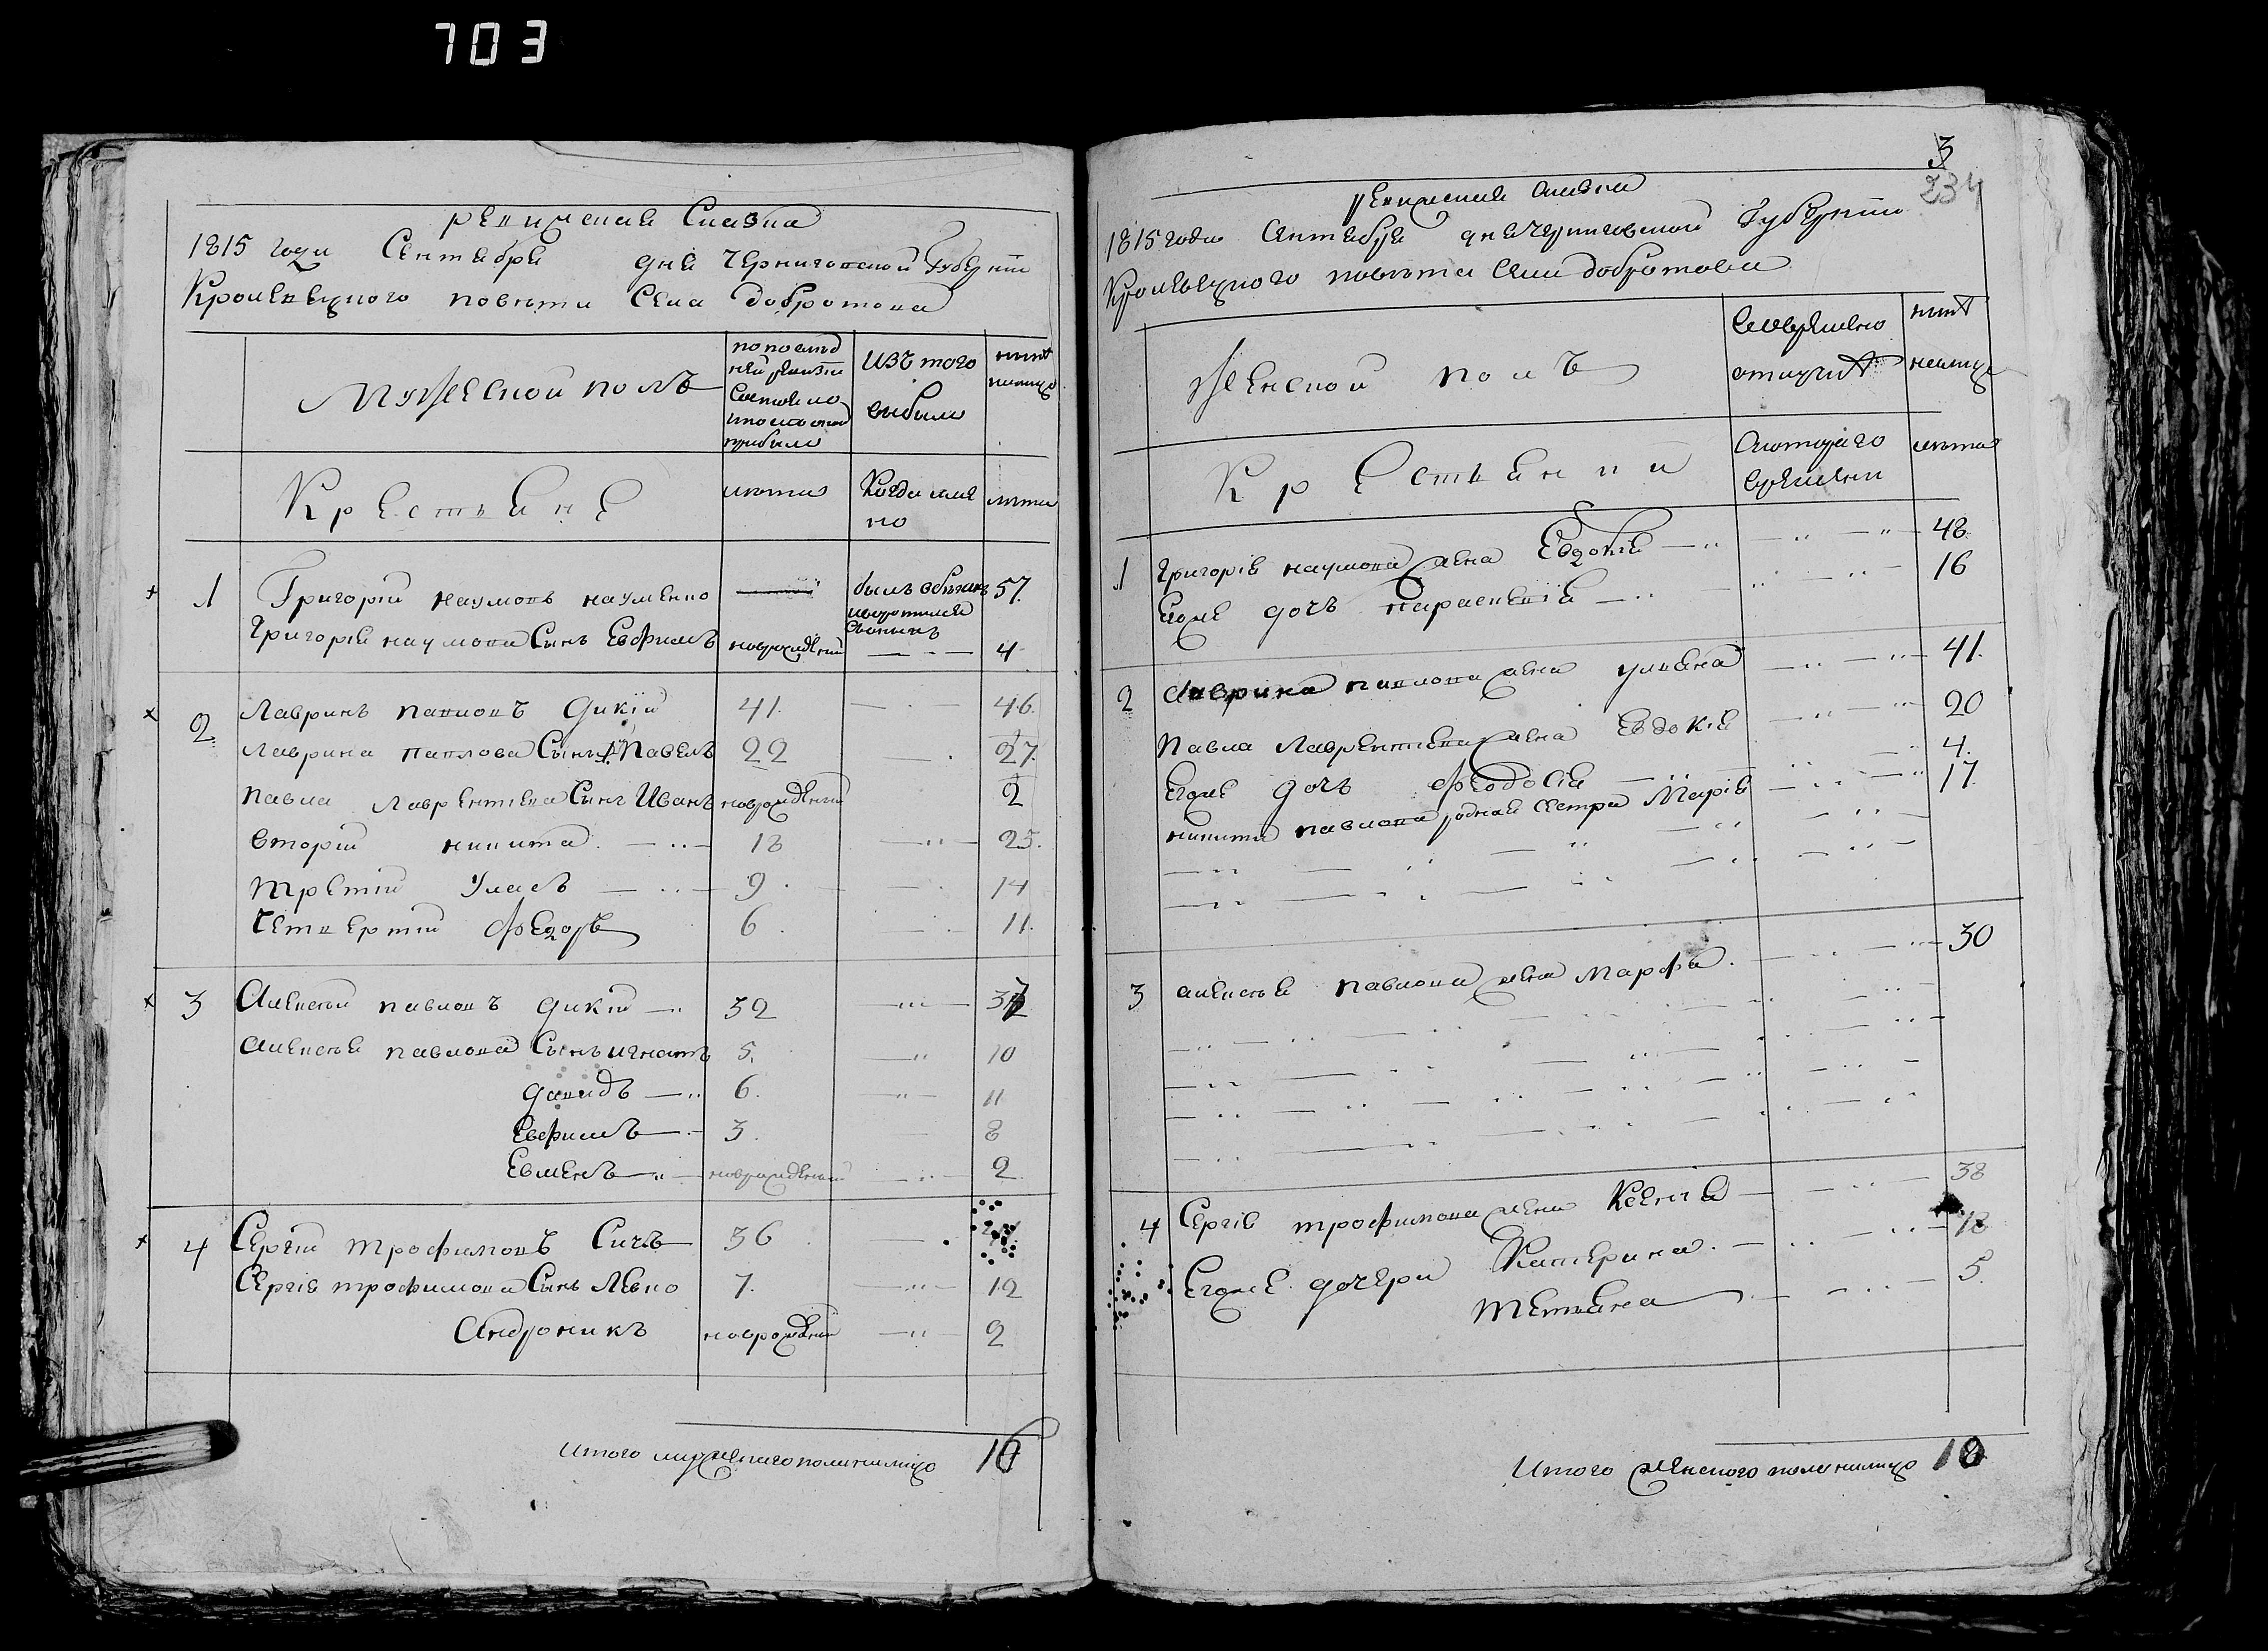 703
ревижская Сказка
1815 года Сентября дня Черниговской Губернiи
Кролевецкого повѣта Села Добротова
Мужеской полъ
по послѣд
ней ревизiи
Состояло
и после оной
прибыло
Изъ того
выбыло
нынѣ
налицо
Крестьяне
лѣта
Когда имя
но
лѣта
1 Григорiй Наумовъ Науменко 57.
Григорiя Наумова Сынъ Евфимъ новорожденный 4
2 Лавринъ Павловъ Дикiй 41. 46.
Лаврина Павлова Сынъ 1й Павелъ 22 27.
Павла Лаврентiева Сынъ Иванъ новорожденный 2
вторiй Никита 18 23.
Третiй Уласъ 9. 14
Четвертiй Федоръ 6. 11.
3 Алексѣй Павловъ Дикiй 32 37
Алексѣя Павлова Сынъ Игнатъ 5. 10
Давидъ 6. 11
Евфимъ 3. 8
Евменъ новорожденный 2
4 Сергiй Трофимовъ Сичъ 36
Сергiя Трофимова Сынъ Левко 7. 12
Андроникъ новорожденый 2
Итого мужескаго пола налицо 16
3
234
ревижская Сказка
1815 года Сентября дня Черниговской Губернiи
Кролевецкого повѣта Села Добротова
Женской полъ
во временно
отлучкѣ
нынѣ
налицо
Крестьянки
Скоторого
времени
лѣта
1 Григорiя Наумова жена Евдокiя 48
Егоже дочъ Парасковiя 16
2 Лаврина Павлова жена Ульяна 41.
Павла Лаврентiева жена Евдокiя 20
Егоже дочъ Феодосiя 4.
Никити Павлова родная Сестра Марiя 17
3 Алексѣя Павлова жена Марфа. 30
4 Сергiя Трофимова жена Ксенiя 38
Егоже дочери Катерина. 12
Тетьяна 5.
Итого женского пола налицо 10